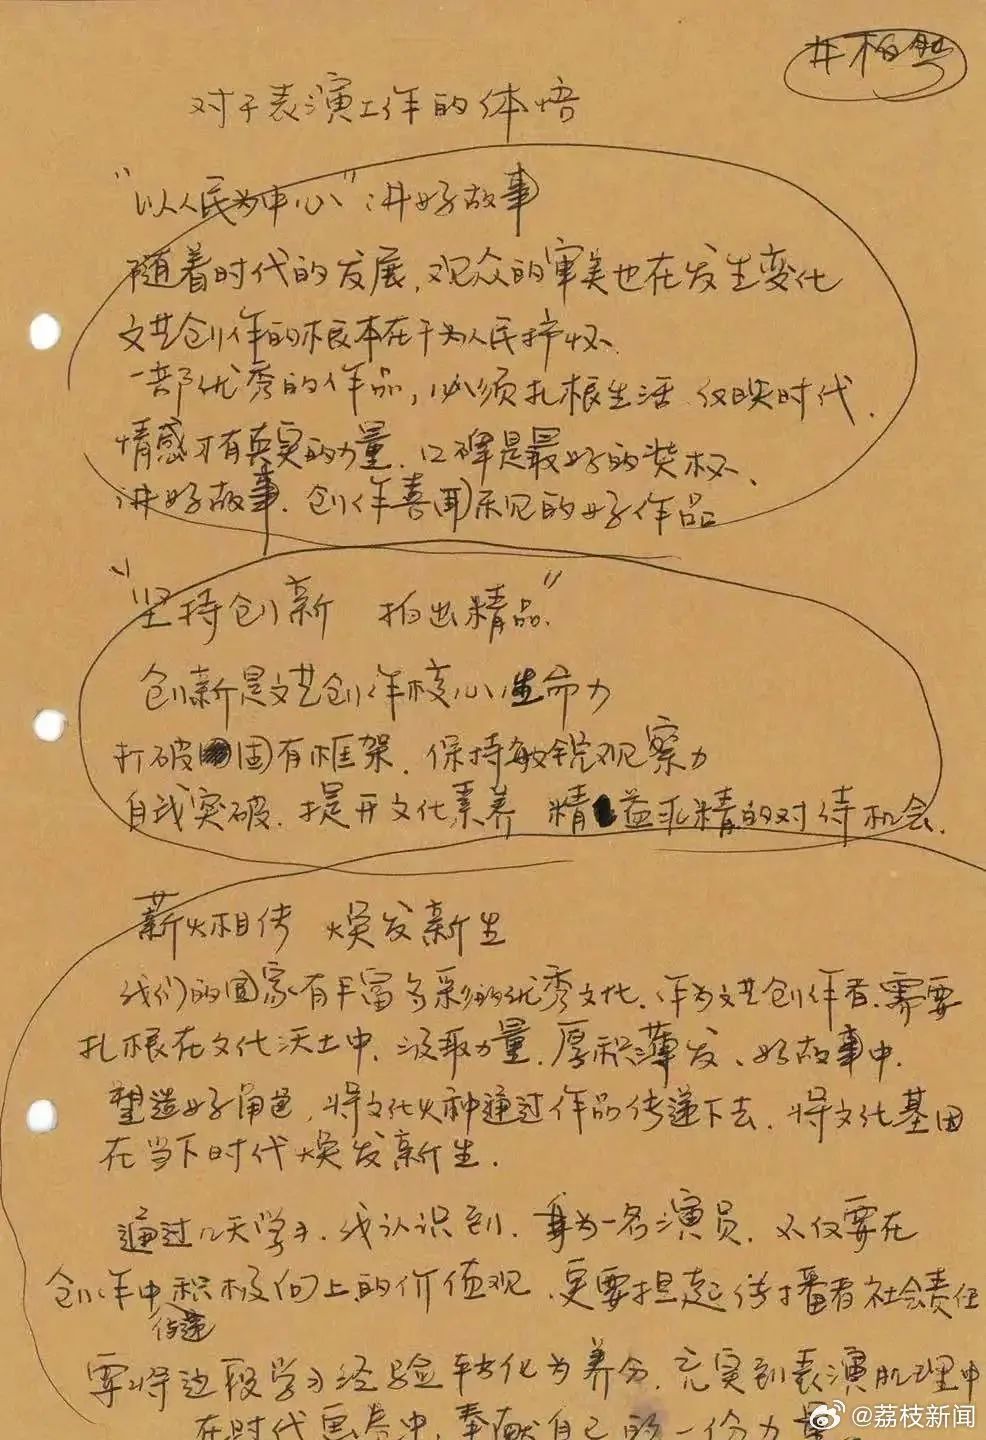 井柏然
对于表演工作的体悟
“以人民为中心”讲好故事
随着时代的发展,观众的审美也在发生变化
文艺创作的根本在于为人民抒怀、
一部优秀的作品,必须扎根生活、反映时代.
情感才有真实的力量、口碑是最好的奖杯、
讲好故事、创作喜闻乐见的好作品
“坚持创新 拍出精品”
创新是文艺创作核心生命力
打破固有框架、保持敏锐观察力
自我突破、提升文化素养 精益求精的对待机会、
薪火相传 焕发新生
我们的国家有丰富多彩的优秀文化、作为文艺创作者、需要
扎根在文化沃土中、汲取力量、厚积薄发、好故事中、
塑造好角色,将文化火种通过作品传递下去、将文化基因
在当下时代焕发新生、
通过几天学习、我认识到、身为一名演员、不仅要在
创作中积极向上的价值观、更要担起传播者社会责任
传递
要将这段学习经验转化为养分、充实到表演肌理中
在时代画卷中,奉献自己的一份力量。
@荔枝新闻